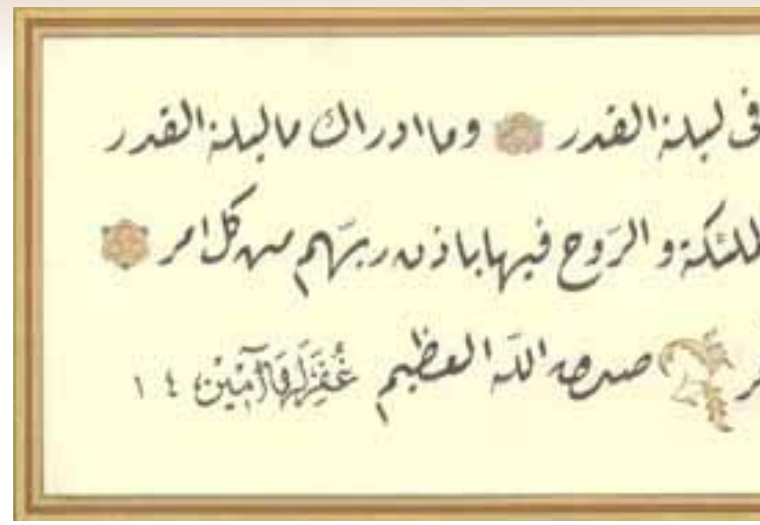 فى ليلة القدر وما ادراك ما ليلة القدر
لملئكة والروح فيها باذن ربهم من كل امر
صدق الله العظيم